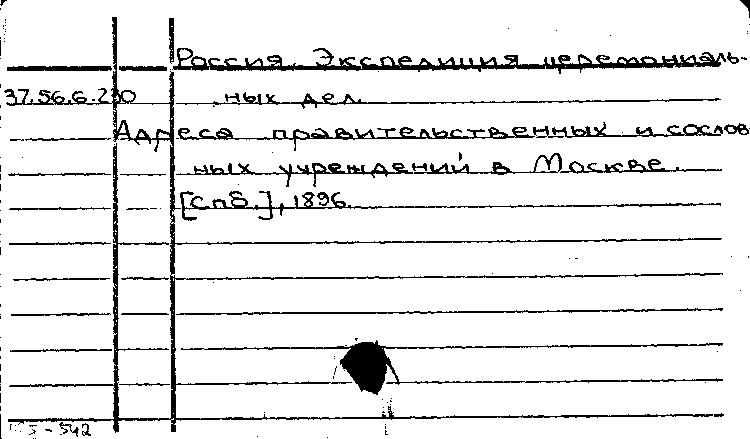 Россия. Экспедиция церемониаль-
37.56.6.230 ных дел.
Адреса правительственных и сослов
ных учреждений в Москве.
[Спб.], 1896
- 542